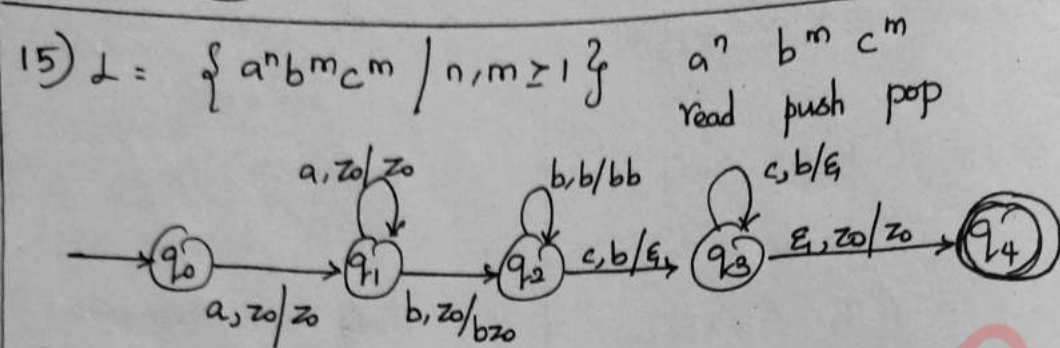 15) L = { aⁿbᵐcᵐ / n,m ≥ 1 } aⁿ bᵐ cᵐ
read push pop
a, z0/z0
b,b/bb
c,b/ε
q0
q1
q2
c,b/ε
q3
ε, z0/z0
q4
a, z0/z0
b, z0/bz0